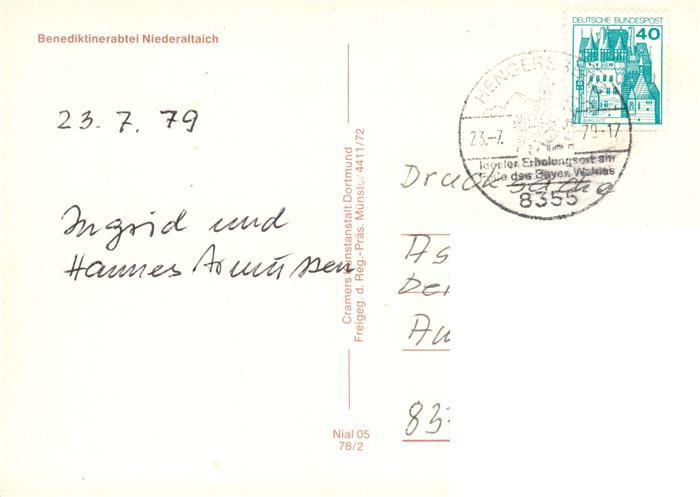 Benediktinerabtei Niederaltaich
23. 7. 79
Ingrid und
Hannes Asmussen
Cramers Kunstanstalt Dortmund
Freigeg. d. Reg.-Präs. Münster 4411/72
Nial 05
78/2
DEUTSCHE BUNDESPOST
40
BURG ELTZ
HENGERSBERG
23.-7. 79-17
Idealer Erholungsort am
Fuße des Bayer. Waldes
8355
Drucksache
As
De
Au
83